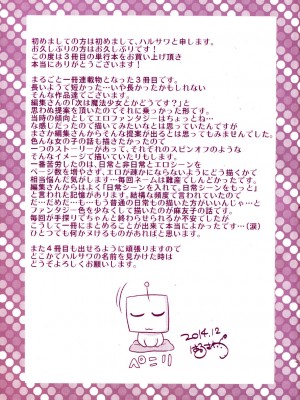 初めましての方は初めまして、ハルサワと申します。
お久しぶりの方はお久しぶりです！
この度は３冊目の単行本をお買い上げ頂き
本当にありがとうございます！
まるごと一冊連載物となった３冊目です。
長いようで短かった…いや長かったかもしれない
そんな作品達でございます。
編集さんの「次は魔法少女とかどうです？」と
思わぬ提案を頂いたのでそれに乗っかった形です。
当時の傾向としてエロファンタジーはちょっとね…
な感じだったので描いてみたいなとは思っていたんですが
まさか編集さんからそんな提案が出るとは思ってもみませんでした。
色んな女の子の話も描きたかったので
一つのストーリーがあって、それぞれのスピンオフのような
そんなイメージで描いていたりもします。
一番苦労したのは、日常と非日常とエロシーンを
ページ数を増やさず、エロが疎かにならないようにどう描くかで
相当悩んだ気がします…毎回ネームは難産でしんどかったです。
編集さんからはよく「日常シーンを入れて、日常シーンをもっと」
と言われた記憶があります。結構な頻度で言われていたので
だ…だめだ…も…もう普通の日常も描いた方がいいんじゃ…と
ファンタジー色を少なくして描いたのが麻友子の話です。
毎回が手探りでちゃんと終わらせられるか不安でしたが
こうして一冊にまとめることが出来て本当によかったです…（涙）
ひとつでも何かヌけるものがあればと思います。
また４冊目も出せるように頑張りますので
どこかでハルサワの名前を見かけた時は
どうぞよろしくお願いします。
2014.12
ハルサワ
ペコリ